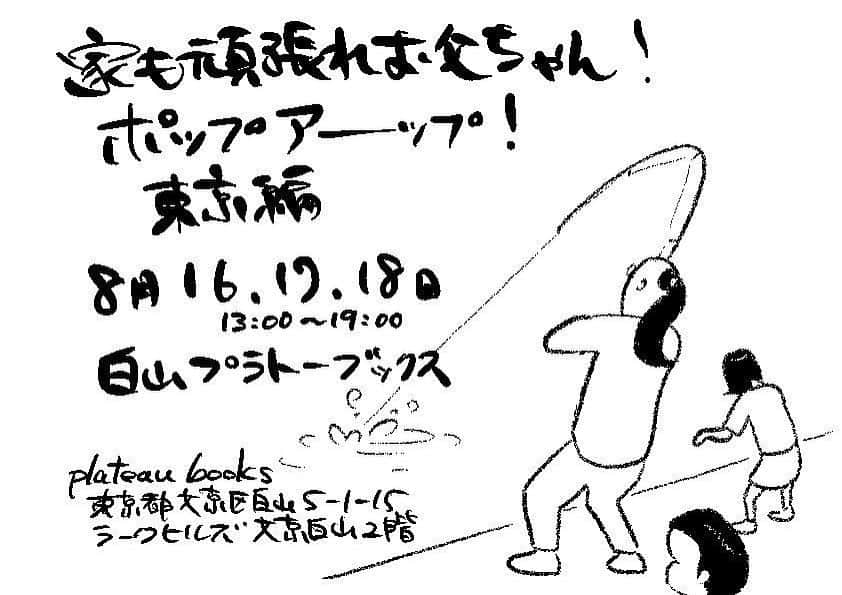 家も頑張れお父ちゃん!
ポップアーップ!
東京編
8月16.17.18日
13:00〜19:00
白山プラトーブックス
plateau books
東京都文京区白山5-1-15
ラークヒルズ文京白山2階